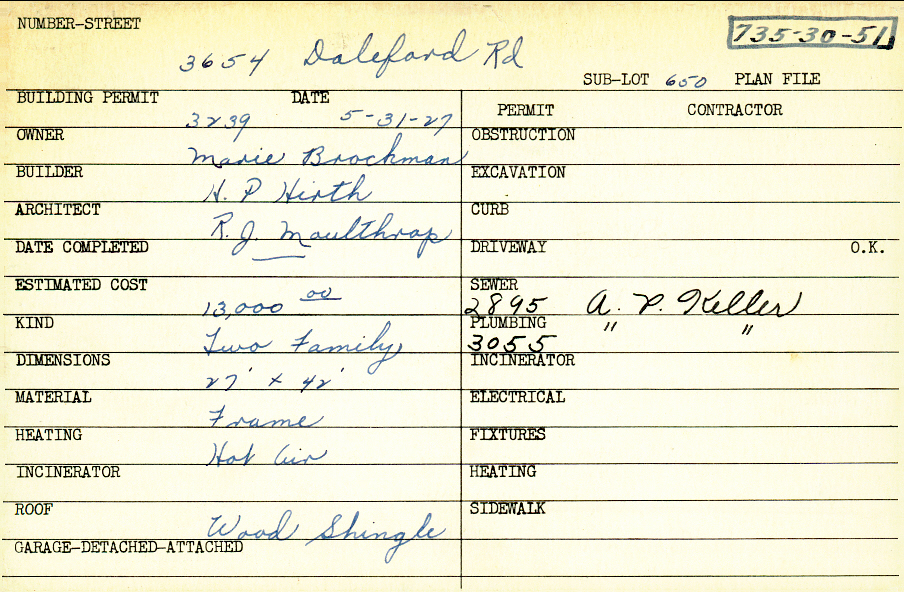 NUMBER-STREET
735-30-51
3654 Daleford Rd
SUB-LOT 650 PLAN FILE
BUILDING PERMIT DATE
3239 5-31-27
OWNER
Marie Brockman
BUILDER
H. P Hirth
ARCHITECT
R. J. Maulthrop
DATE COMPLETED
ESTIMATED COST
13,000 00
KIND
Two Family
DIMENSIONS
27' x 42'
MATERIAL
Frame
HEATING
Hot Air
INCINERATOR
ROOF
Wood Shingle
GARAGE-DETACHED-ATTACHED
PERMIT CONTRACTOR
OBSTRUCTION
EXCAVATION
CURB
DRIVEWAY O.K.
SEWER
2895 A. P. Keller
PLUMBING " "
3055
INCINERATOR
ELECTRICAL
FIXTURES
HEATING
SIDEWALK